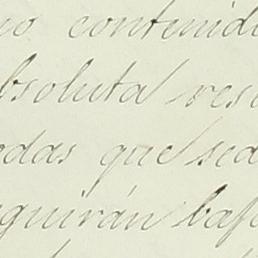 no contenid
absoluta res
odas que sea
eguirán baj